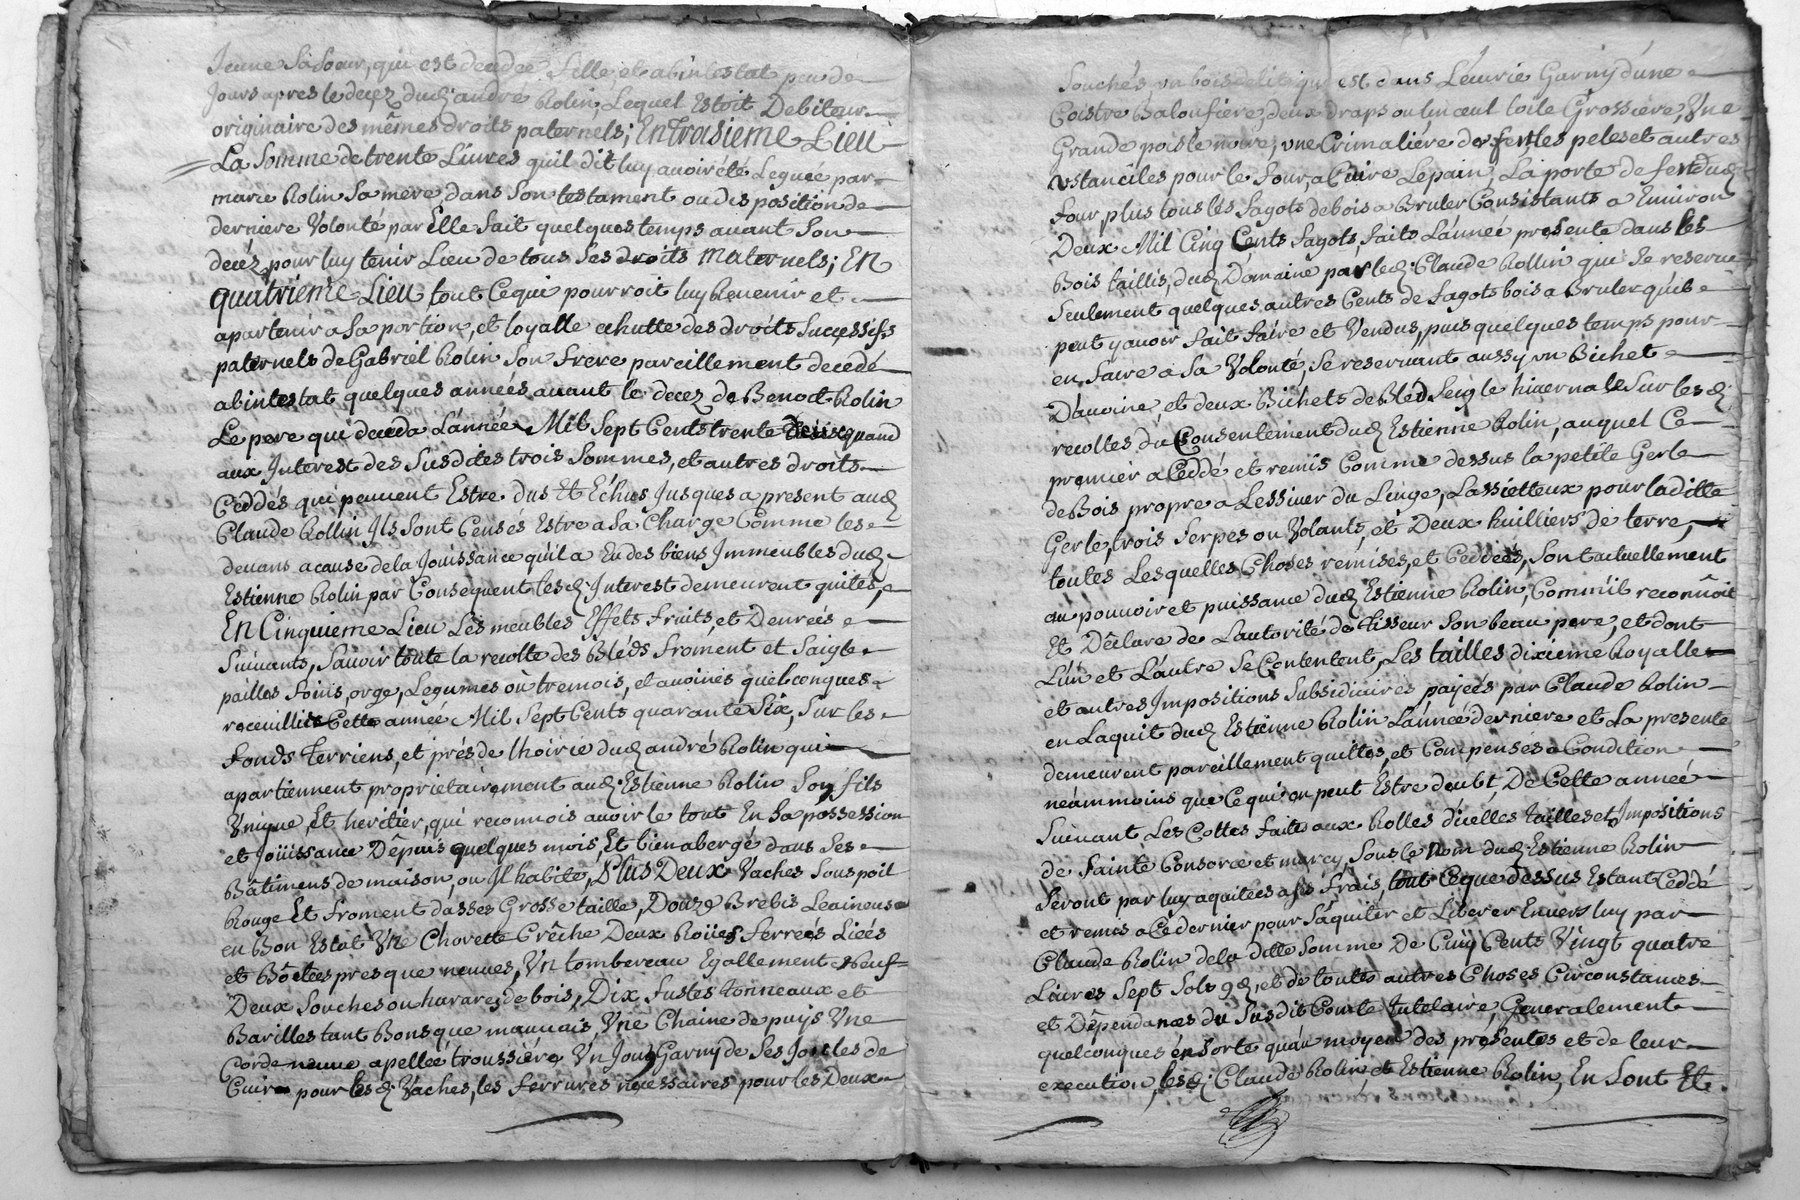 Jeune sa soeur, qui est decedée fille et abintestat peu de
Jours apres le decez dud. andré Rolin, Lequel Estoit Debiteur
originaire des mêmes droits paternels; En Troisieme Lieu
La Somme de trente Livres qu'il dit luy avoir été Leguée par
marie Rolin Sa mere dans Son testament ou disposition de
derniere Volonté par Elle fait quelques temps avant Son
decéz pour luy tenir Lieu de tous Ses droits Maternels; En
quatriéme Lieu tout Ce qui pourroit luy Revenir et
apartenir a Sa portion, et loyalle cehutte des droits Successifs
paternels de Gabriel Rolin Son frere pareillement decedé
abintestat quelques années avant le decez de Benoit Rolin
Le pere qui deceda L'année Mil Sept Cents trente Deux quand
aux Interest des Susdites trois Sommes, et autres droits
Ceddés qui peuvent Estre dus Et Échus Jusques a present aud.
Claude Rollin Ils Sont Censés Estre a Sa Charge Comme les
devans a cause de la Jouissance qu'il a Eu des biens Immeubles dud.
Estienne Rolin par Consequent lesd. Interest demeurent quites,
En Cinquieme Lieu Les meubles Effets fruits, et Denrées
Suivants, Savoir toute la recolte des Bléds froment et Saigle
pailles foins, orge, Legumes ou tremois, et avoines quelconques
receuillies Cette année Mil Sept Cents quarante Six, Sur les
fonds terriens, et prés de l'hoirie dud. andré Rolin qui
apartiennent proprietairement aud. Estienne Rolin Son fils
Unique, Et heritier, qui reconnois avoir le tout En Sa possession
et Joüissance Dêpuis quelques mois, Et bien abergé dans Ses
Bâtimens de maison, ou Il habite, Plus Deux Vaches Sous poil
Rouge Et froment d'asses Grosse taille, Douze Brebis Leaineus
en Bon Estat Une Chorette Crêche Deux Roües ferreés Lieés
et Bôettes presque neuves, Un tombereau Egallement Neuf
Deux Souches ou harares de bois, Dix fustes tonneaux et
Barilles tant Bons que mauvais, Une Chaine de puys Une
Corde neuve apelleé troussiere, Un Joug Garny de Ses Joucles de
Cuire pour lesd. Vaches, les ferrures necessaires pour les Deux
Souchés un bois de lit qui est dans L'écurie Garny d'une
Coistre Baloufiere, deux draps ou linceul toile Grossiere, Une
Grande poisle noire, une Crimaliere de fer les peles et autres
ustanciles pour le four, a Cuire Le pain, La porte de fer dud.
four, plus tous les fagots de bois a Bruler Consistants a Environ
Deux Mil Cinq Cents fagots, faits L'année presente dans les
Bois taillis, dud. Domaine par led. Claude Rollin qui Se reserve
Seulement quelques autres Cents de fagots bois a Bruler qu'il
peut y avoir fait faire et Vendus, puis quelques temps pour
en faire a Sa Volonté, Se reservant aussy un Bichet
D'avoine, et deux Bichets de Bled Seigle hivernal Sur lesd.
recoltes du Consentement dud. Estienne Rolin, auquel Ce
premier a Ceddé et remis Comme dessus la petite Gerle
de Bois propre a Lessiver du Linge, L'assietteux pour laditte
Gerle, trois Serpes ou Volants, et Deux huilliers de terre,
toutes Lesquelles Choses remises, et Ceddées, Sont actuellement
au pouvoir et puissance dud. Estienne Rolin, Comm'il reconnoit
Et Dêclare de L'autorité de tisseur Son beau pere, et dont
L'un et L'autre Se Contentent, Les tailles dixieme Royalle
et autres Impositions Subsidiaires payées par Claude Rolin
en L'aquit dud. Estienne Rolin L'année derniere et La presente
demeurent pareillement quittes, et Compensés a Condition
néammoins que Ce qui en peut Estre deubt De Cette année
Suivant Les Cottes faites aux Rolles d'icelles tailles et Impositions
de Sainte Consorce et marcy, Sous le Nom dud. Estienne Rolin
Seront par luy aquitées a Ses frais, tout Ce que dessus Estant Ceddé
et remis a Ce dernier pour S'aquiter et Liberer Envers luy par
Claude Rolin de la ditte Somme De Cinq Cents Vingt quatre
Livres Sept Sols 9d, et de toutes autres Choses Circonstances
et Dêpendances du Susdit Compte tutelaire, Generalement
quelconques én Sorte qu'au moyen des présentes et de leur
execution, lesd. Claude Rolin et Estienne Rolin, En Sont Et